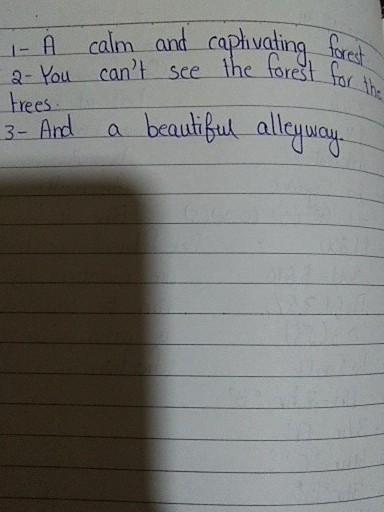 1- A calm and captivating forest
2- You can't see the forest for the
trees.
3- And a beautiful alleyway.